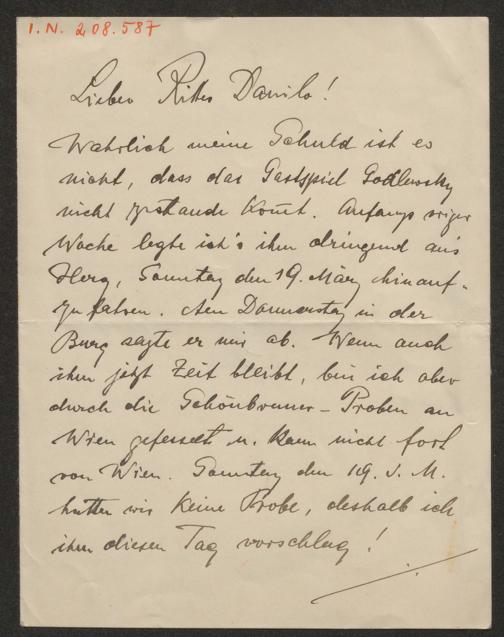 I. N. 208.587
Lieber Ritter Danilo!
Wahrlich meine Schuld ist es
nicht, dass das Gastspiel Godlewsky
nicht zustande kom̄t. Anfangs voriger
Woche legte ich's ihm dringend an's
Herz, Sonntag den 19. März hinauf-
zufahren. Am Donnerstag in der
Burg sagte er mir ab. Wenn auch
ihm jetzt Zeit bleibt, bin ich aber
durch die Schönbrunner-Proben an
Wien gefesselt u. kann nicht fort
von Wien. Sonntag den 19. d. M.
hatten wir keine Probe, deshalb ich
ihm diesen Tag vorschlug!